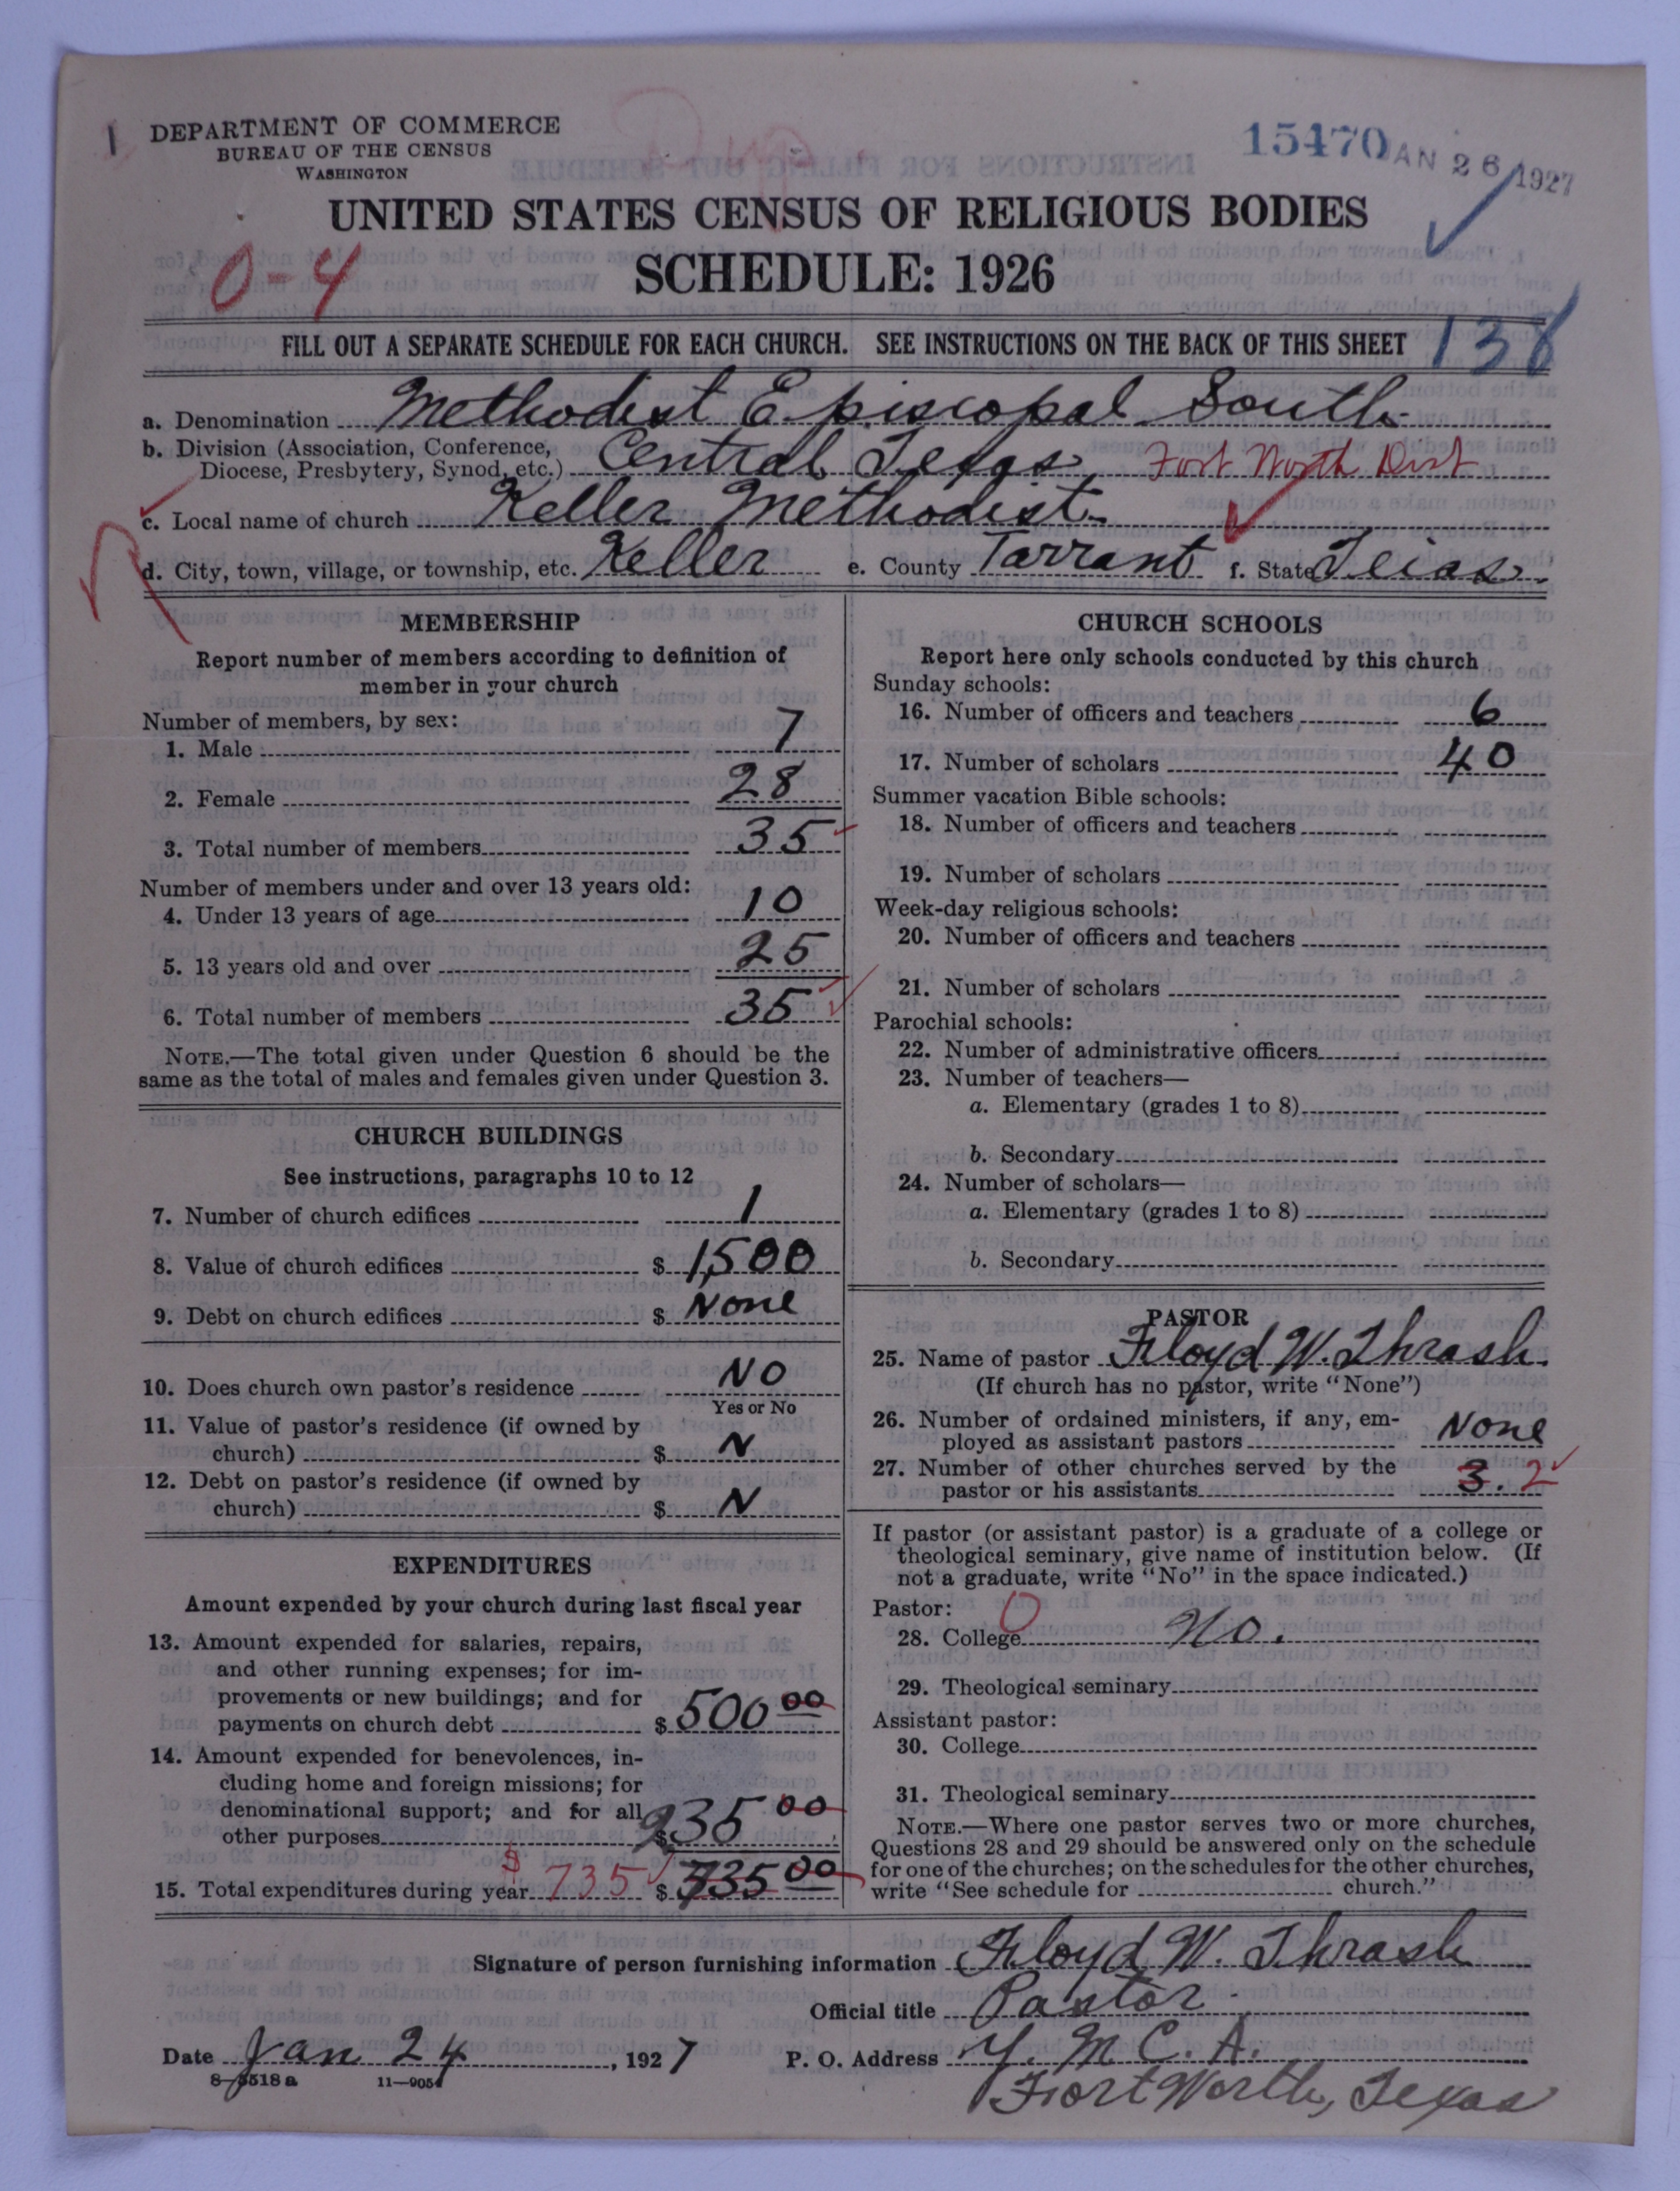 1 DEPARTMENT OF COMMERCE
BUREAU OF THE CENSUS
WASHINGTON
15470
JAN 26 1927
UNITED STATES CENSUS OF RELIGIOUS BODIES
0-4
SCHEDULE: 1926
FILL OUT A SEPARATE SCHEDULE FOR EACH CHURCH. SEE INSTRUCTIONS ON THE BACK OF THIS SHEET 138
a. Denomination Methodist Episcopal South
b. Division (Association, Conference,
Diocese, Presbytery, Synod, etc.) Central Texas Fort Worth Dist
c. Local name of church Keller Methodist
d. City, town, village, or township, etc. Keller e. County Tarrant f. State Texas.
MEMBERSHIP
Report number of members according to definition of
member in your church
Number of members, by sex:
1. Male 7
2. Female 28
3. Total number of members 35
Number of members under and over 13 years old:
4. Under 13 years of age 10
5. 13 years old and over 25
6. Total number of members 35
NOTE.—The total given under Question 6 should be the
same as the total of males and females given under Question 3.
CHURCH BUILDINGS
See instructions, paragraphs 10 to 12
7. Number of church edifices 1
8. Value of church edifices $ 1,500
9. Debt on church edifices $ None
10. Does church own pastor's residence NO
Yes or No
11. Value of pastor's residence (if owned by
church) $ N
12. Debt on pastor's residence (if owned by
church) $ N
EXPENDITURES
Amount expended by your church during last fiscal year
13. Amount expended for salaries, repairs,
and other running expenses; for im-
provements or new buildings; and for
payments on church debt $ 500 00
14. Amount expended for benevolences, in-
cluding home and foreign missions; for
denominational support; and for all
other purposes $ 235 00
15. Total expenditures during year $ 735 $ 735 00
CHURCH SCHOOLS
Report here only schools conducted by this church
Sunday schools:
16. Number of officers and teachers 6
17. Number of scholars 40
Summer vacation Bible schools:
18. Number of officers and teachers
19. Number of scholars
Week-day religious schools:
20. Number of officers and teachers
21. Number of scholars
Parochial schools:
22. Number of administrative officers
23. Number of teachers—
a. Elementary (grades 1 to 8)
b. Secondary
24. Number of scholars—
a. Elementary (grades 1 to 8)
b. Secondary
PASTOR
25. Name of pastor Floyd W. Thrash.
(If church has no pastor, write "None")
26. Number of ordained ministers, if any, em-
ployed as assistant pastors None
27. Number of other churches served by the
pastor or his assistants 3. 2
If pastor (or assistant pastor) is a graduate of a college or
theological seminary, give name of institution below. (If
not a graduate, write "No" in the space indicated.)
Pastor: 0
28. College No.
29. Theological seminary
Assistant pastor:
30. College
31. Theological seminary
NOTE.—Where one pastor serves two or more churches,
Questions 28 and 29 should be answered only on the schedule
for one of the churches; on the schedules for the other churches,
write "See schedule for church."
Signature of person furnishing information Floyd W. Thrash
Official title Pastor
Date Jan 24, 1927 P. O. Address Y. M. C. A.
8-5518 a 11-9054
Fort Worth, Texas